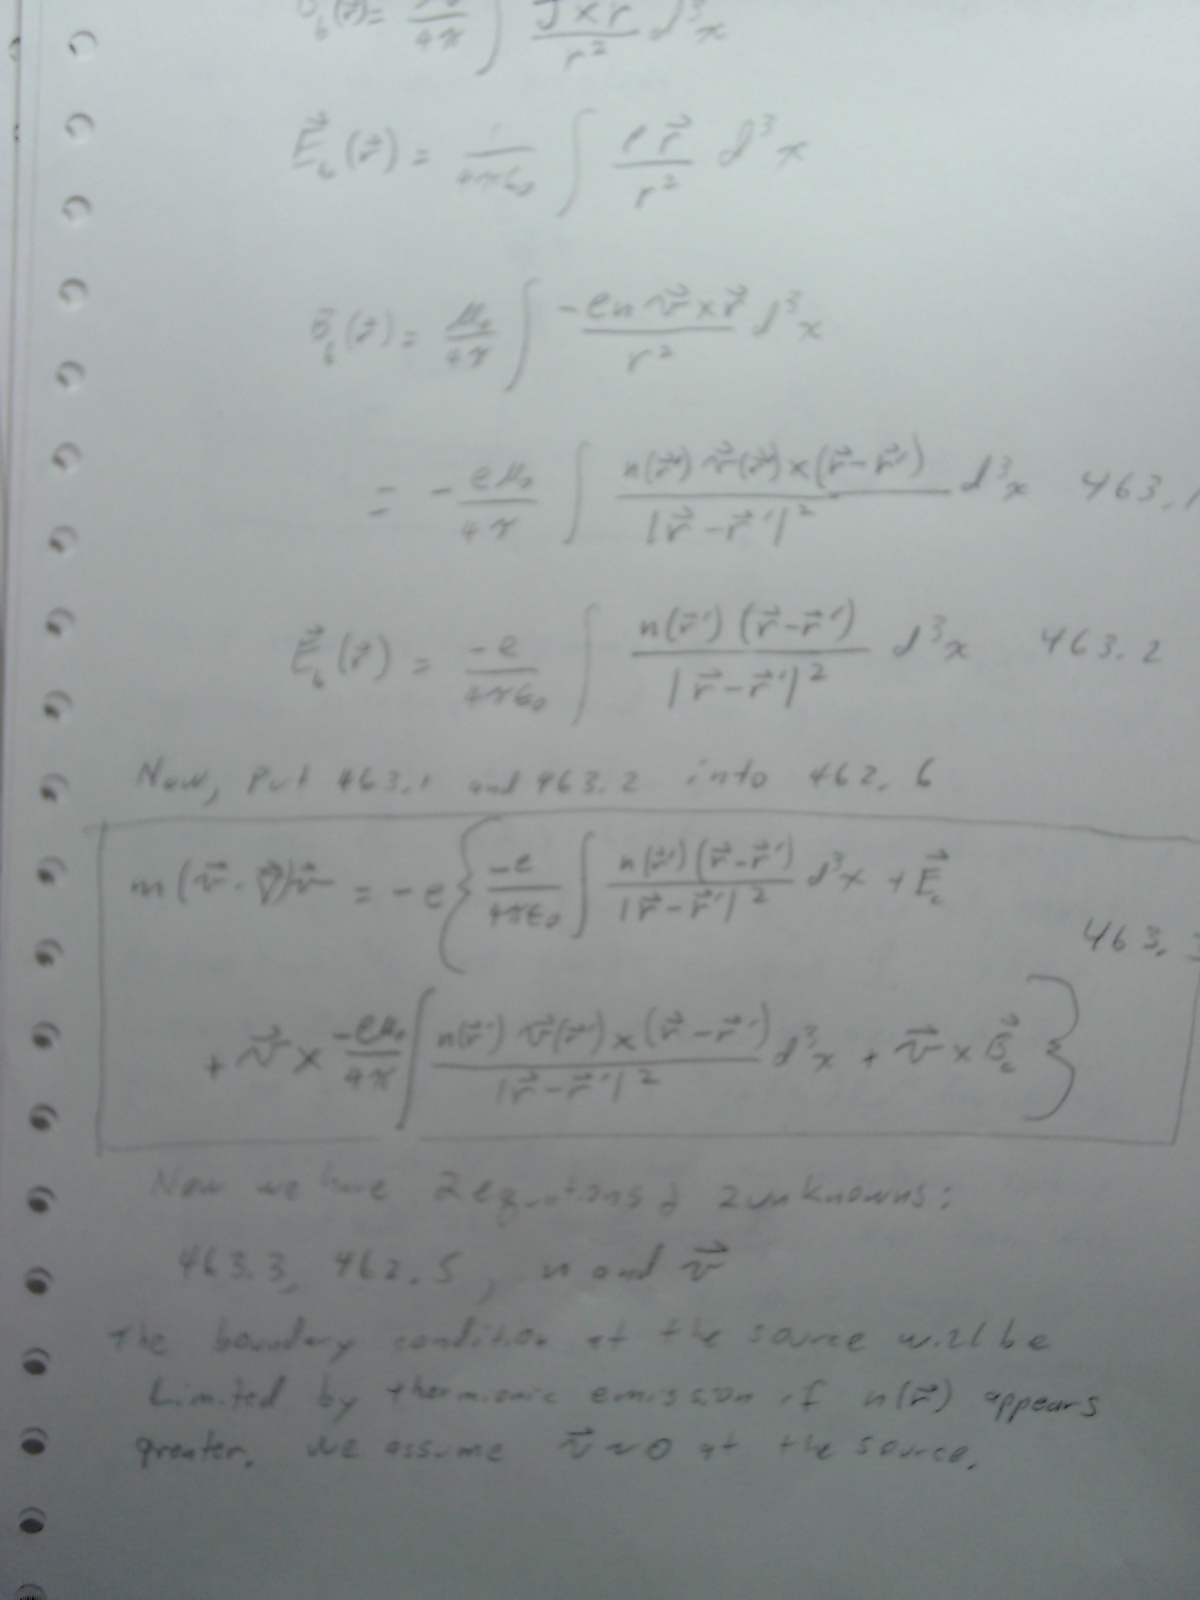 B_b(r⃗) = μ₀/4π ∫ J×r/r² d³x
E⃗_b(r⃗) = 1/4πε₀ ∫ ρ r⃗/r² d³x
B⃗_b(r⃗) = μ₀/4π ∫ -en v⃗×r⃗/r² d³x
= - eμ₀/4π ∫ n(r⃗') v⃗(r⃗')×(r⃗-r⃗')/|r⃗-r⃗'|² d³x 463.1
E⃗_b(r⃗) = -e/4πε₀ ∫ n(r⃗') (r⃗-r⃗')/|r⃗-r⃗'|² d³x 463.2
Now, put 463.1 and 463.2 into 462.6
m(v⃗·∇⃗)v⃗ = -e{ -e/4πε₀ ∫ n(r⃗')(r⃗-r⃗')/|r⃗-r⃗'|² d³x + E⃗_c
463.3
+ v⃗ × -eμ₀/4π ∫ n(r⃗') v⃗(r⃗')×(r⃗-r⃗')/|r⃗-r⃗'|² d³x + v⃗ × B⃗_c }
Now we have 2 equations & 2 unknowns:
463.3, 462.5, n and v⃗
The boundary condition at the source will be
limited by thermionic emission if n(r⃗) appears
greater. We assume v⃗ ~ 0 at the source.